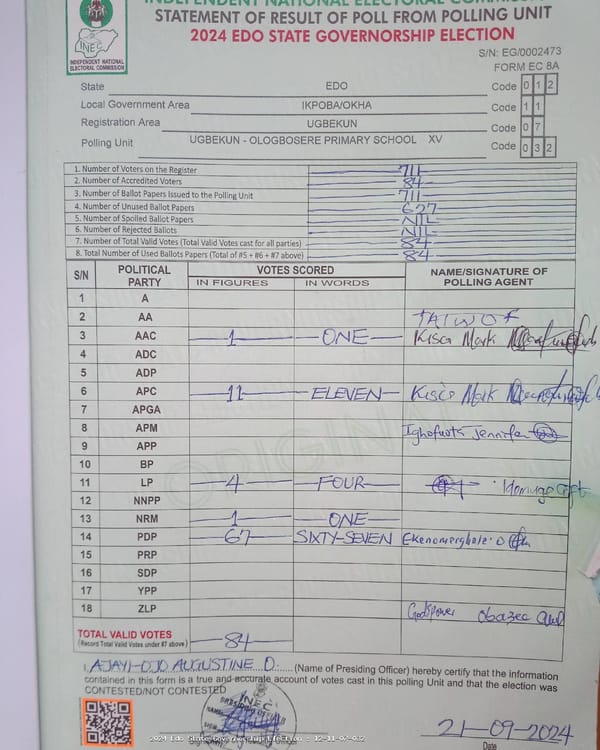 INDEPENDENT NATIONAL ELECTORAL COMMISSION
STATEMENT OF RESULT OF POLL FROM POLLING UNIT
2024 EDO STATE GOVERNORSHIP ELECTION
INEC
INDEPENDENT NATIONAL
ELECTORAL COMMISSION
S/N: EG/0002473
FORM EC 8A
State EDO Code 0 1 2
Local Government Area IKPOBA/OKHA Code 1 1
Registration Area UGBEKUN Code 0 7
Polling Unit UGBEKUN - OLOGBOSERE PRIMARY SCHOOL XV Code 0 3 2
1. Number of Voters on the Register 711
2. Number of Accredited Voters 84
3. Number of Ballot Papers Issued to the Polling Unit 711
4. Number of Unused Ballot Papers 627
5. Number of Spoiled Ballot Papers NIL
6. Number of Rejected Ballots NIL
7. Number of Total Valid Votes (Total Valid Votes cast for all parties) 84
8. Total Number of Used Ballots Papers (Total of #5 + #6 + #7 above) 84
S/N POLITICAL PARTY VOTES SCORED NAME/SIGNATURE OF POLLING AGENT
IN FIGURES IN WORDS
1 A
2 AA TAIWO F
3 AAC 1 ONE Kisco Mark
4 ADC
5 ADP
6 APC 11 ELEVEN Kisco Mark
7 APGA
8 APM Jennifer
9 APP
10 BP
11 LP 4 FOUR
12 NNPP
13 NRM 1 ONE
14 PDP 67 SIXTY-SEVEN
15 PRP
16 SDP
17 YPP
18 ZLP Godspower Obazee
TOTAL VALID VOTES 84
(Record Total Valid Votes under #7 above)
I, AJAYI-OJO AUGUSTINE O. (Name of Presiding Officer) hereby certify that the information
contained in this form is a true and accurate account of votes cast in this polling Unit and that the election was
CONTESTED/NOT CONTESTED
INEC
21-09-2024
Date
2024 Edo State Governorship Election - 12-11-07-032
ORIGINAL